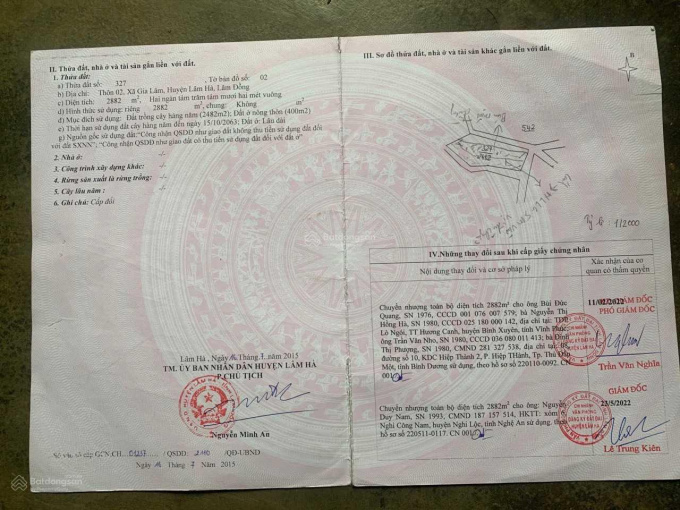 II. Thửa đất, nhà ở và tài sản gắn liền với đất.
1. Thửa đất:
a) Thửa đất số: 327 , Tờ bản đồ số: 02
b) Địa chỉ: Thôn 02, Xã Gia Lâm, Huyện Lâm Hà, Lâm Đồng
c) Diện tích: 2882 m², Hai ngàn tám trăm tám mươi hai mét vuông
d) Hình thức sử dụng: riêng 2882 m², chung: Không m²
đ) Mục đích sử dụng: Đất trồng cây hàng năm (2482m2); Đất ở nông thôn (400m2)
e) Thời hạn sử dụng đất cây hàng năm đến ngày 15/10/2063; Đất ở: Lâu dài
g) Nguồn gốc sử dụng đất: "Công nhận QSDĐ như giao đất không thu tiền sử dụng đất đối
với đất SXNN"; "Công nhận QSDĐ như giao đất có thu tiền sử dụng đất đối với đất ở"
2. Nhà ở: -/-
3. Công trình xây dựng khác: -/-
4. Rừng sản xuất là rừng trồng: -/-
5. Cây lâu năm: -/-
6. Ghi chú: Cấp đổi
Lâm Hà, ngày tháng 7. năm 2015
TM. ỦY BAN NHÂN DÂN HUYỆN LÂM HÀ
P.CHỦ TỊCH
Nguyễn Minh An
Số vào sổ cấp GCN.CH QSDĐ: /QĐ-UBND
Ngày tháng 7 năm 2015
Batdongsan
III. Sơ đồ thửa đất, nhà ở và tài sản khác gắn liền với đất.
B
542
327
Tỷ lệ 1/2000
IV.Những thay đổi sau khi cấp giấy chứng nhân
Nội dung thay đổi và cơ sở pháp lý
Xác nhận của cơ
quan có thẩm quyền
Chuyển nhượng toàn bộ diện tích 2882m² cho ông Bùi Đức
Quang, SN 1976, CCCD 001 076 007 579; bà Nguyễn Thị
Hồng Hà, SN 1980, CCCD 025 180 000 142, địa chỉ tại: TDP
Lò Ngói, TT Hương Canh, huyện Bình Xuyên, tỉnh Vĩnh Phúc
ông Trần Văn Nho, SN 1980, CCCD 036 080 011 413; bà Đinh
Thị Phượng, SN 1980, CMND 281 327 538, địa chỉ tại:
đường số 10, KDC Hiệp Thành 2, P. Hiệp Thành, Tp. Thủ Dầu
Một, tỉnh Bình Dương sử dụng, theo hồ sơ số 220110-0092. CN
001
11/02/2022
GIÁM ĐỐC
PHÓ GIÁM ĐỐC
Trần Văn Nghĩn
Chuyển nhượng toàn bộ diện tích 2882m² cho ông: Nguyễn
Duy Nam, SN 1993, CMND 187 157 514, HKTT: xóm
Nghi Công Nam, huyện Nghi Lộc, tỉnh Nghệ An sử dụng, theo
hồ sơ số 220511-0117. CN 001
GIÁM ĐỐC
23/5/2022
Lê Trung Kiên